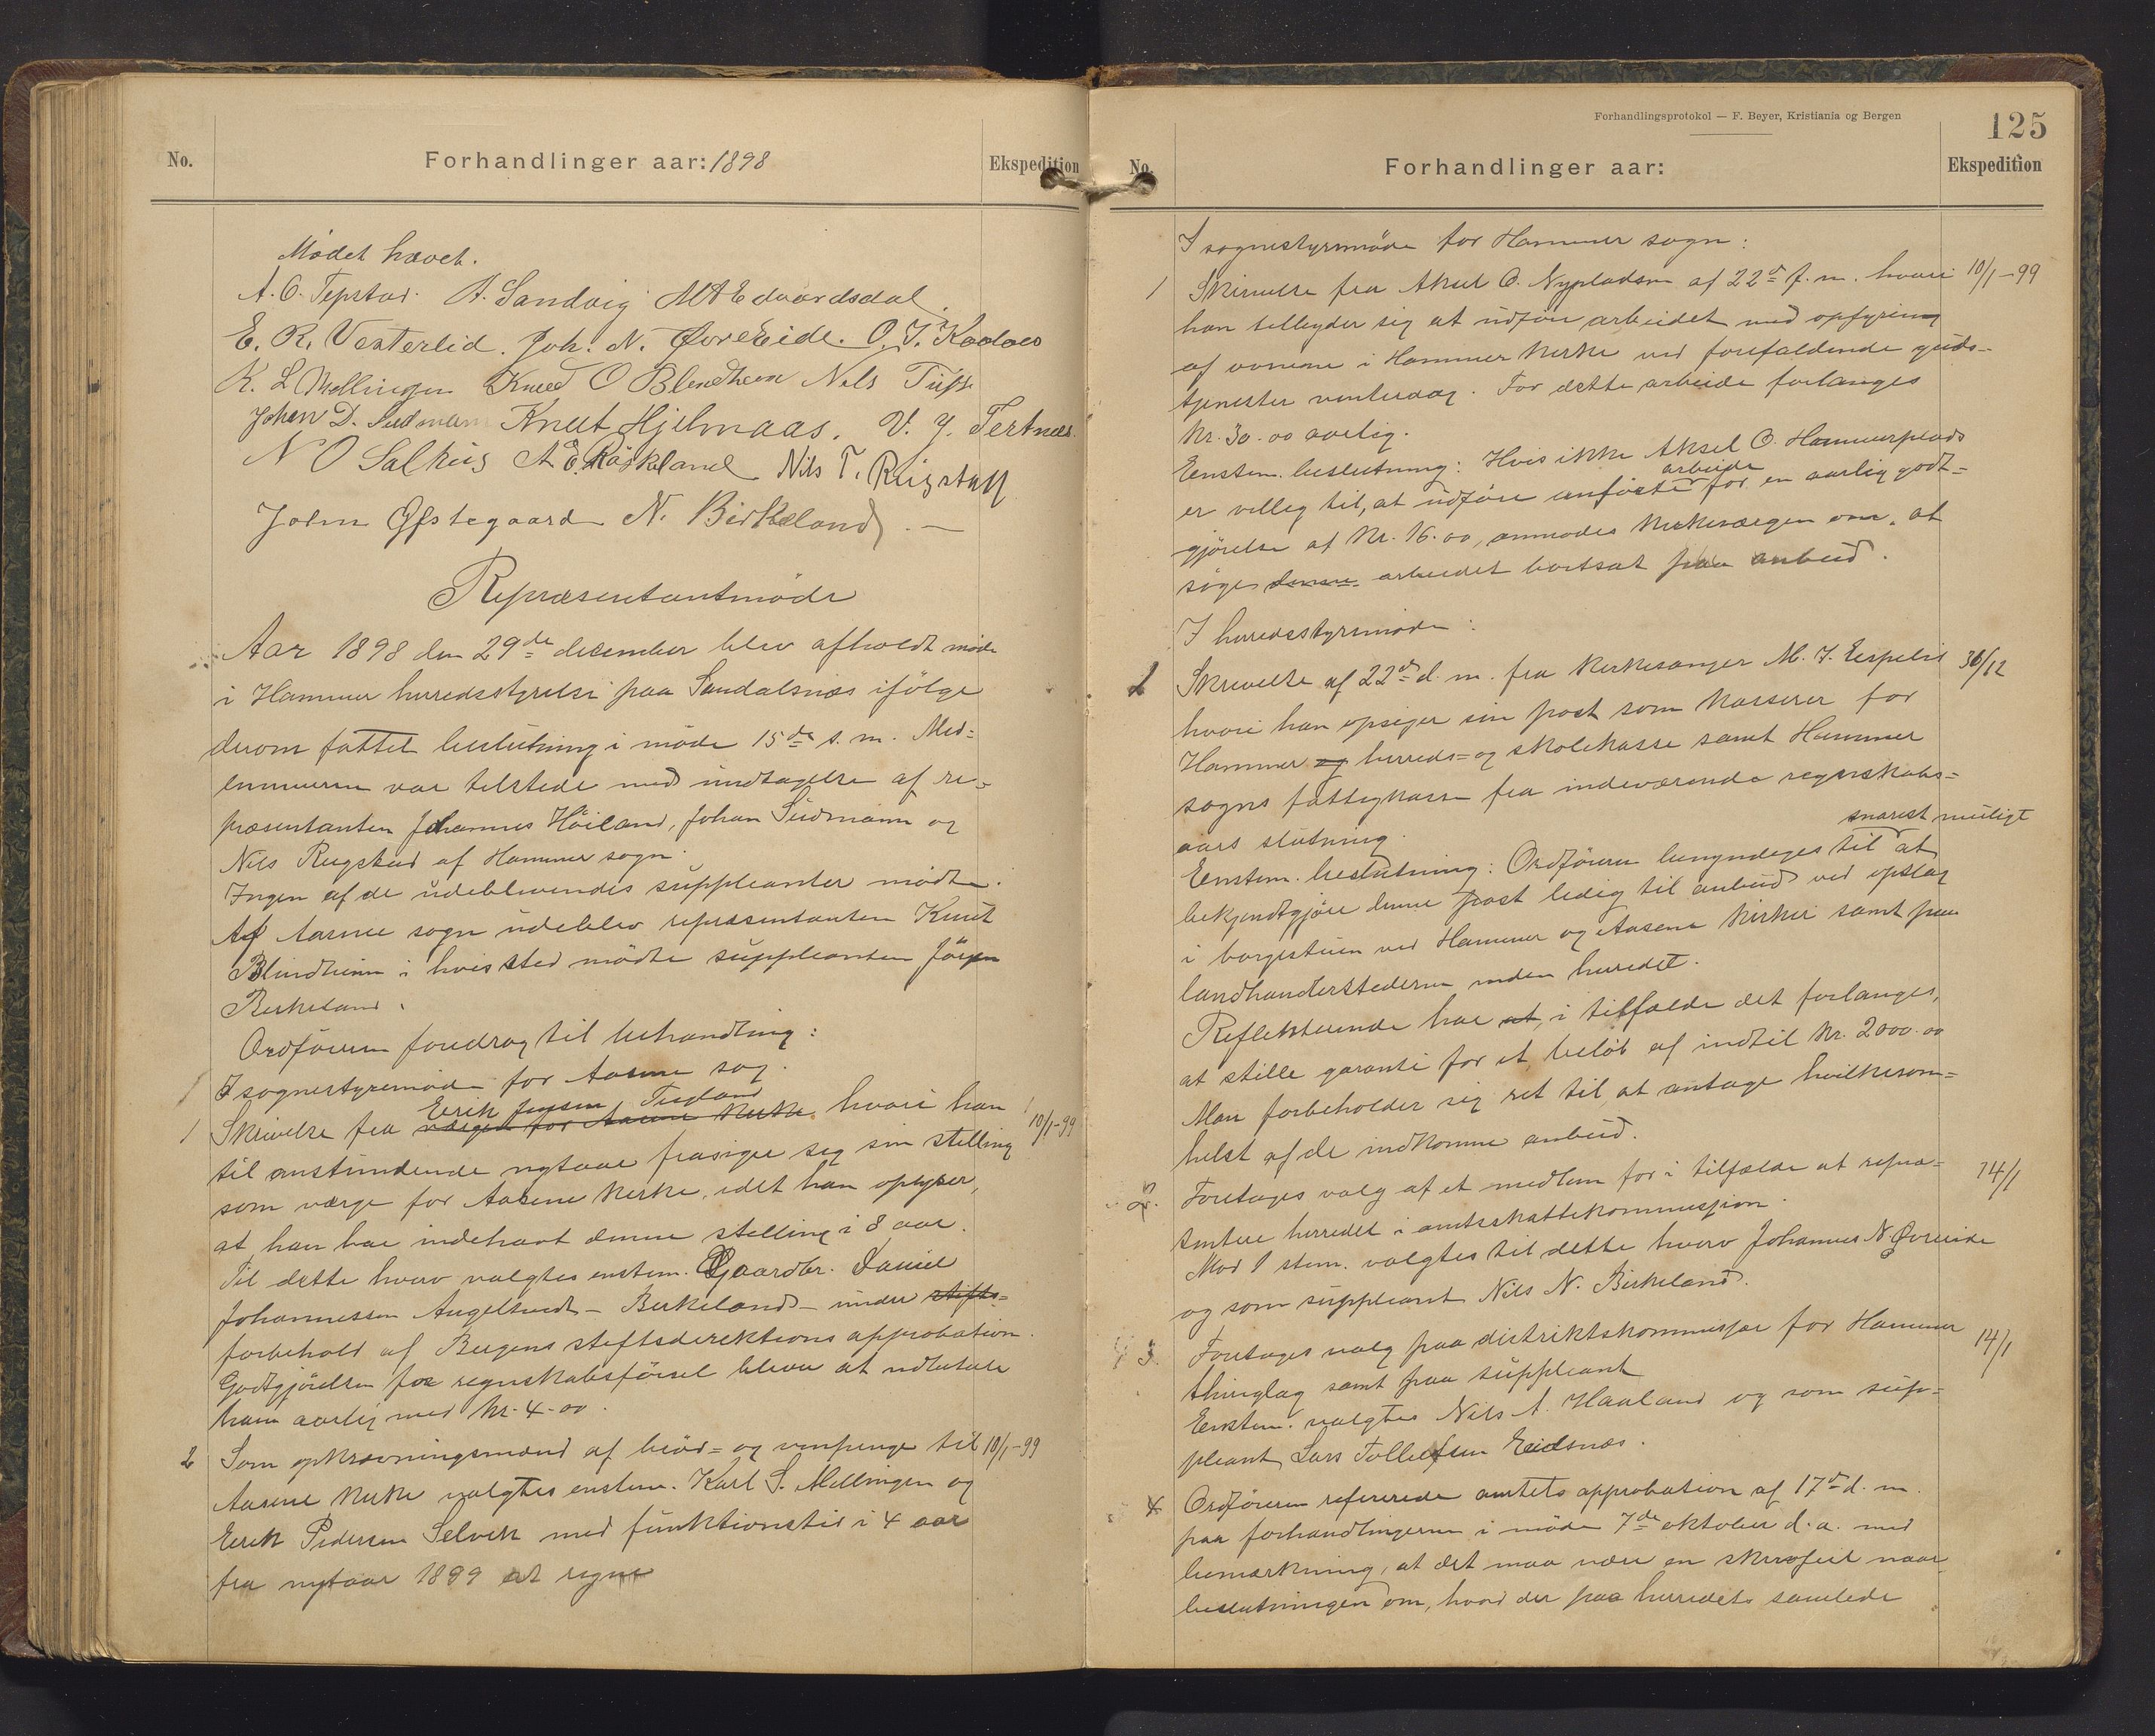 No.
Forhandlinger aar: 1898
Ekspedition
Mødet hævet.
A. O. Tepstad. A. Sandvig M A Edvardsdal.
E. R. Vesterlid. Joh. N. Øvreeide. O. J. Kodoes
K. L Mellingen Knud O Blendheim Nils Tufte
Johan D. Sudmann Knut Hjelmaas. V. J. Tertnæs.
N O Salhus A E. Røskeland Nils T. Rügstad
John Øfstegaard N. Birkeland. —
Repræsentantmøde
Aar 1898 den 29de december blev afholdt møde
i Hammer herredsstyrelse paa Sandalsnæs ifölge
derom fattet beslutning i møde 15de s. m. Med=
lemmerne var tilstede med undtagelse af re-
præsentanten Johannes Höiland, Johan Sudmann og
Nils Rugstad af Hammer sogn.
Ingen af de udeblevendes suppleanter mødte.
Af Aasene sogn udeblev repræsentanten Knut
Blindheim i hvis sted mödte suppleanten Jörgen
Birkeland.
Ordföreren foredrog til behandling:
I sognestyremöde for Aasene sog.
Erik Jensen Tugland
1 Skrivelse fra værgen for Aasene kirke, hvori han 10/1-99
til anstundende nytaar frasiger seg sin stelling
som værge for Aasene kirke, idet han oplyser,
at han har indehavt denne stelling i 8 aar.
Til dette hverv valgtes enstem. Gaardbr. Daniel
Johannessen Angeltveit - Birkeland - under stifts=
forbehold af Bergens stiftsdirektions approbation.
Godtgjörelsen for regnskabsförsel blever at udbetale
ham aarlig med Kr. 4.00.
2 Som opkrævningsmænd af bröd= og vinpenge til 10/1-99
Aasene kirke valgtes enstem. Karl S. Mellingen og
Erik Pedersen Selvik med funktionstid i 4 aar
fra nytaar 1899 at regne
Forhandlingsprotokol — F. Beyer, Kristiania og Bergen
125
No.
Forhandlinger aar:
Ekspedition
I sognestyremöde for Hammer sogn:
1 Skrivelse fra Aksel O. Nypladsen af 22de f. m. hvori 10/1-99
han tilbyder sig at udföre arbeidet med opfyring
af ovnene i Hammer kirke ved forefaldende guds-
tjenester vinterdag. For dette arbeide forlanges
Kr. 30.00 aarlig.
Eenstem. beslutning: Hvis ikke Aksel O. Hammerplads
arbeide
er villig til, at udföre anförte for en aarlig godt=
gjörelse af Kr. 16.00, anmodes kirkeværgen om, at
söge denne arbeidet bortsat paa anbud.
I herredsstyremöde:
2 Skrivelse af 22de d. m. fra kirkesanger M. J. Eispelid 30/12
hvori han opsiger sin post som kasserer for
Hammer og herreds= og skolekasse samt Hammer
sogns fattigkasse fra indeværende regnskabs=
aars slutning.
snarest muligt
Eenstem. beslutning: Ordföreren bemyndiges til at
bekjendtgjöre denne post ledig til anbud ved opslag
i borgestuen ved Hammer og Aasene kirker samt paa
landhandlerstederne inden herredet.
Reflekterende har at, i tilfælde det forlanges,
at stille garanti for et belöb af indtil Kr. 2000.00
Man forbeholder sig ret til, at antage hvilkesom=
helst af de indkomne anbud.
3. Foretages valg af et medlem for i tilfælde at repræ= 14/1
sentere herredet i amtsskattekommissjon.
Mod 1 stem. valgtes til dette hverv Johannes N. Øvreeide
og som suppleant Nils N. Birkeland.
3. Foretages valg paa distriktskommissjær for Hammer 14/1
thinglag samt paa suppleant
Eenstem. valgtes Nils A. Haaland og som sup=
pleant Lars Tollefsen Eidsnæs.
4 Ordföreren refererede amtets approbation af 17de d. m.
paa forhandlingerne i möde 7de oktober d. a. med
bemærkning, at det maa være en skrivfeil naar
beslutningen om, hvad der paa herredets samlede